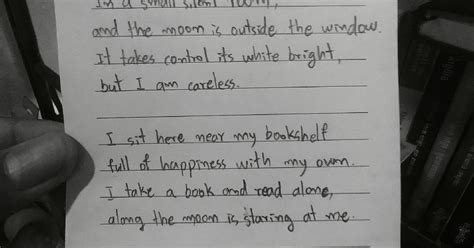 In a small silent room,
and the moon is outside the window.
It takes control its white bright,
but I am careless.
I sit here near my bookshelf
full of happiness with my own.
I take a book and read alone,
along the moon is staring at me.